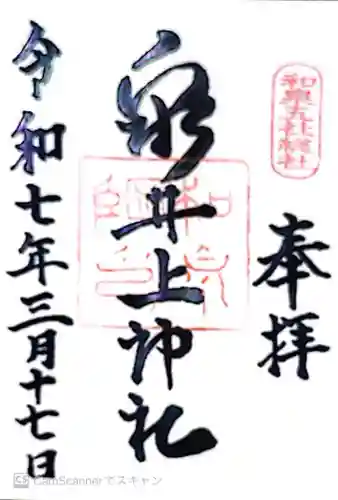 奉拝
和泉五社総社
泉井上神社
令和七年三月十七日
CS CamScannerでスキャン